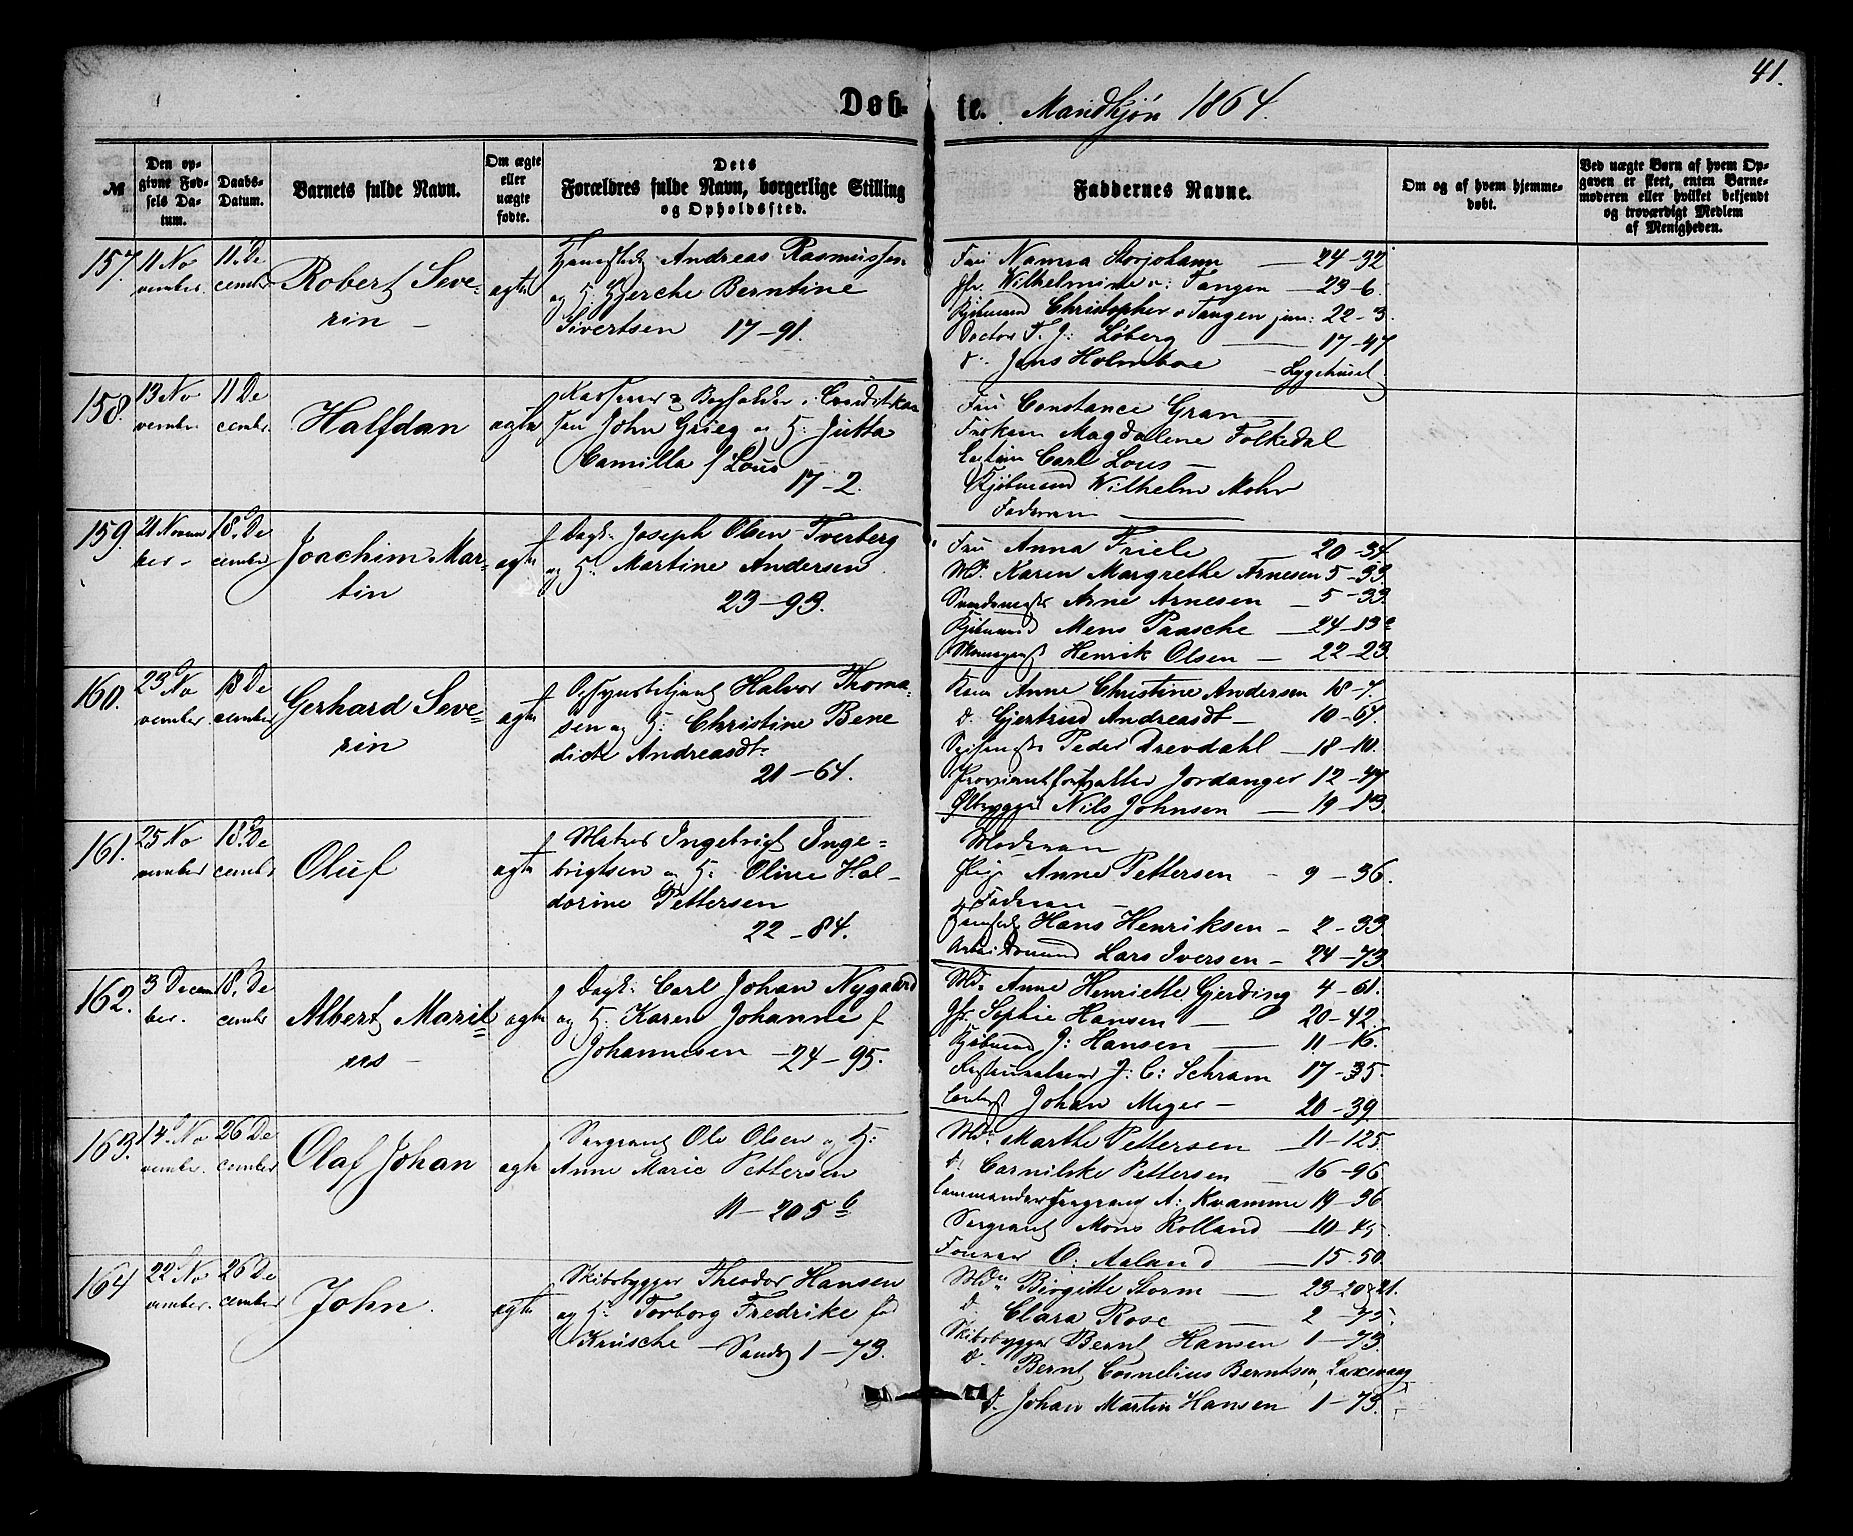 41.
Døb-te. Mandkjøn 1864.
№
Den opgivne Fødsels Datum.
Daabs-Datum.
Barnets fulde Navn.
Om ægte eller uægte fødte.
Dets Forældres fulde Navn, borgerlige Stilling og Opholdssted.
Faddernes Navne.
Om og af hvem hjemmedøbt.
Ved uægte Børn af hvem Opgaven er skeet, enten Barnemoderen eller hvilket bekjendt og troværdigt Medlem af Menigheden.
157. 11 No 11. De
vember. cember
Robert Seve-
rin
ægte
Andreas Rasmussen
og H: Gjerche Berntine
Sivertsen 17-91.
Fru Nanna Storjohann 24-32
Jfr. Wilhelmine v: Tangen 23-6.
Kjøbmand Christopher v Tangen jun: 22-3.
Doctor T. J: Løberg 17-47
d. Jens Holmboe - Sygehuset
158. 13 No 11 De
vember cember.
Halfdan
ægte
Kasserer & Bogholder i Creditkas
sen John Grieg og H: Jutta
Camilla f Lous
17-2.
Fru Constance Gran
Frøken Magdalene Folkedal
Captain Carl Lous
Kjøbmand Wilhelm Mohr
Faderen
159. 21 Novem 18. De
ber cember
Joachim Mar-
tin
ægte
Dagk: Joseph Olsen Tverberg
og H: Martine Andersen
23-93.
Fru Anna Friele 20-34
Md. Karen Margrethe Arnesen 5-33
Arne Arnesen 5-33
Kjøbmand Mens Paasche 24-13
Henrik Olsen 22-23.
160. 23 No 18 De
vember cember
Gerhard Seve-
rin
ægte
Opsynsbetjent Halvor Thoma-
sen og H: Christine Bene
dicte Andreasdt:
21-64.
Kone Anne Christine Andersen 18-7.
d. Gjertrud Andreasdt 10-64.
Peder Drevdahl 18-10.
Proviantforvalter Jordanger 12-47
Ølbrygger Nils Johnsen 19-13.
161. 25 No 18. De
vember cember
Oluf
ægte
Matros Ingebrigt Inge-
brigtsen og H: Oline Hal-
dorine Pettersen
22-84.
Moderen
Pige Anne Pettersen 9-36.
Faderen
Hans Henriksen 2-33
Arbeidsmand Lars Iversen 24-73
162. 3 Decem 18. De
ber. cember
Albert Mari-
us
ægte
Dagk: Carl Johan Nygaard
og H: Karen Johanne f
Johannesen 24-95.
Md. Anne Henriette Gjerding 4-61.
Jfr. Sophie Hansen 20-42.
Kjøbmand J: Hansen 11-16.
J: C: Schram 17-35.
Johan Meyer 20-39
163. 14. No 26 De
vember. cember
Olaf Johan
ægte
Sergeant Ole Olsen og H:
Anne Marie Pettersen
11-205 b
Md. Marthe Pettersen 11-125.
d. Pettersen 16-96.
Commandersergeant A: Kvamme 19-36
Sergeant Mons Rolland 10-45
Fourer O: Aaland 15-50.
164 22 No 26 De
vember. cember
John.
ægte
Skibsbygger Theodor Hansen
og H: Torborg Fredrike fød
Krüsche - 1-73.
Md. Birgitte Storm 23-20&21.
d. Clara Rose 2-75.
Skibsbygger Bernt Hansen 1-73
d. Bernt Cornelius Berntsen, Laxevaag
d. Johan Martin Hansen 1-73.